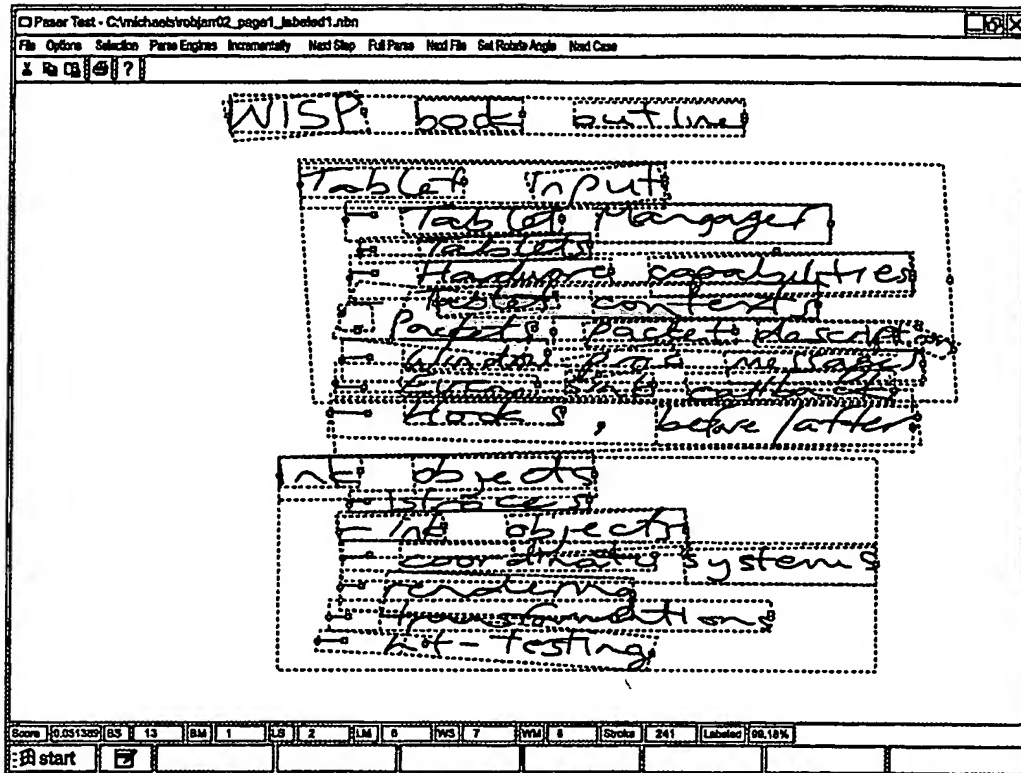 Paser Test - C:\michaels\robjarr02_page1_labeled1.nbn
File Options Selection Parse Engines Incrementally Next Step Full Parse Next File Set Rotate Angle Next Case
?
WISP book outline
Tablet Input
- Tablet Mangager
- Tablets
- Hardware capabilities
- tablet contexts
- Packets, packet description
- Window messages
- callback
- Hooks, before/after
Ink objects
- Strokes
- Ink objects
- coordinate systems
- rendering
- transformations
- hit-testing
Score 0.051389 BS 13 BM 1 LS 2 LM 0 WS 7 WM 6 Stroke 241 Labeled 99.18%
start